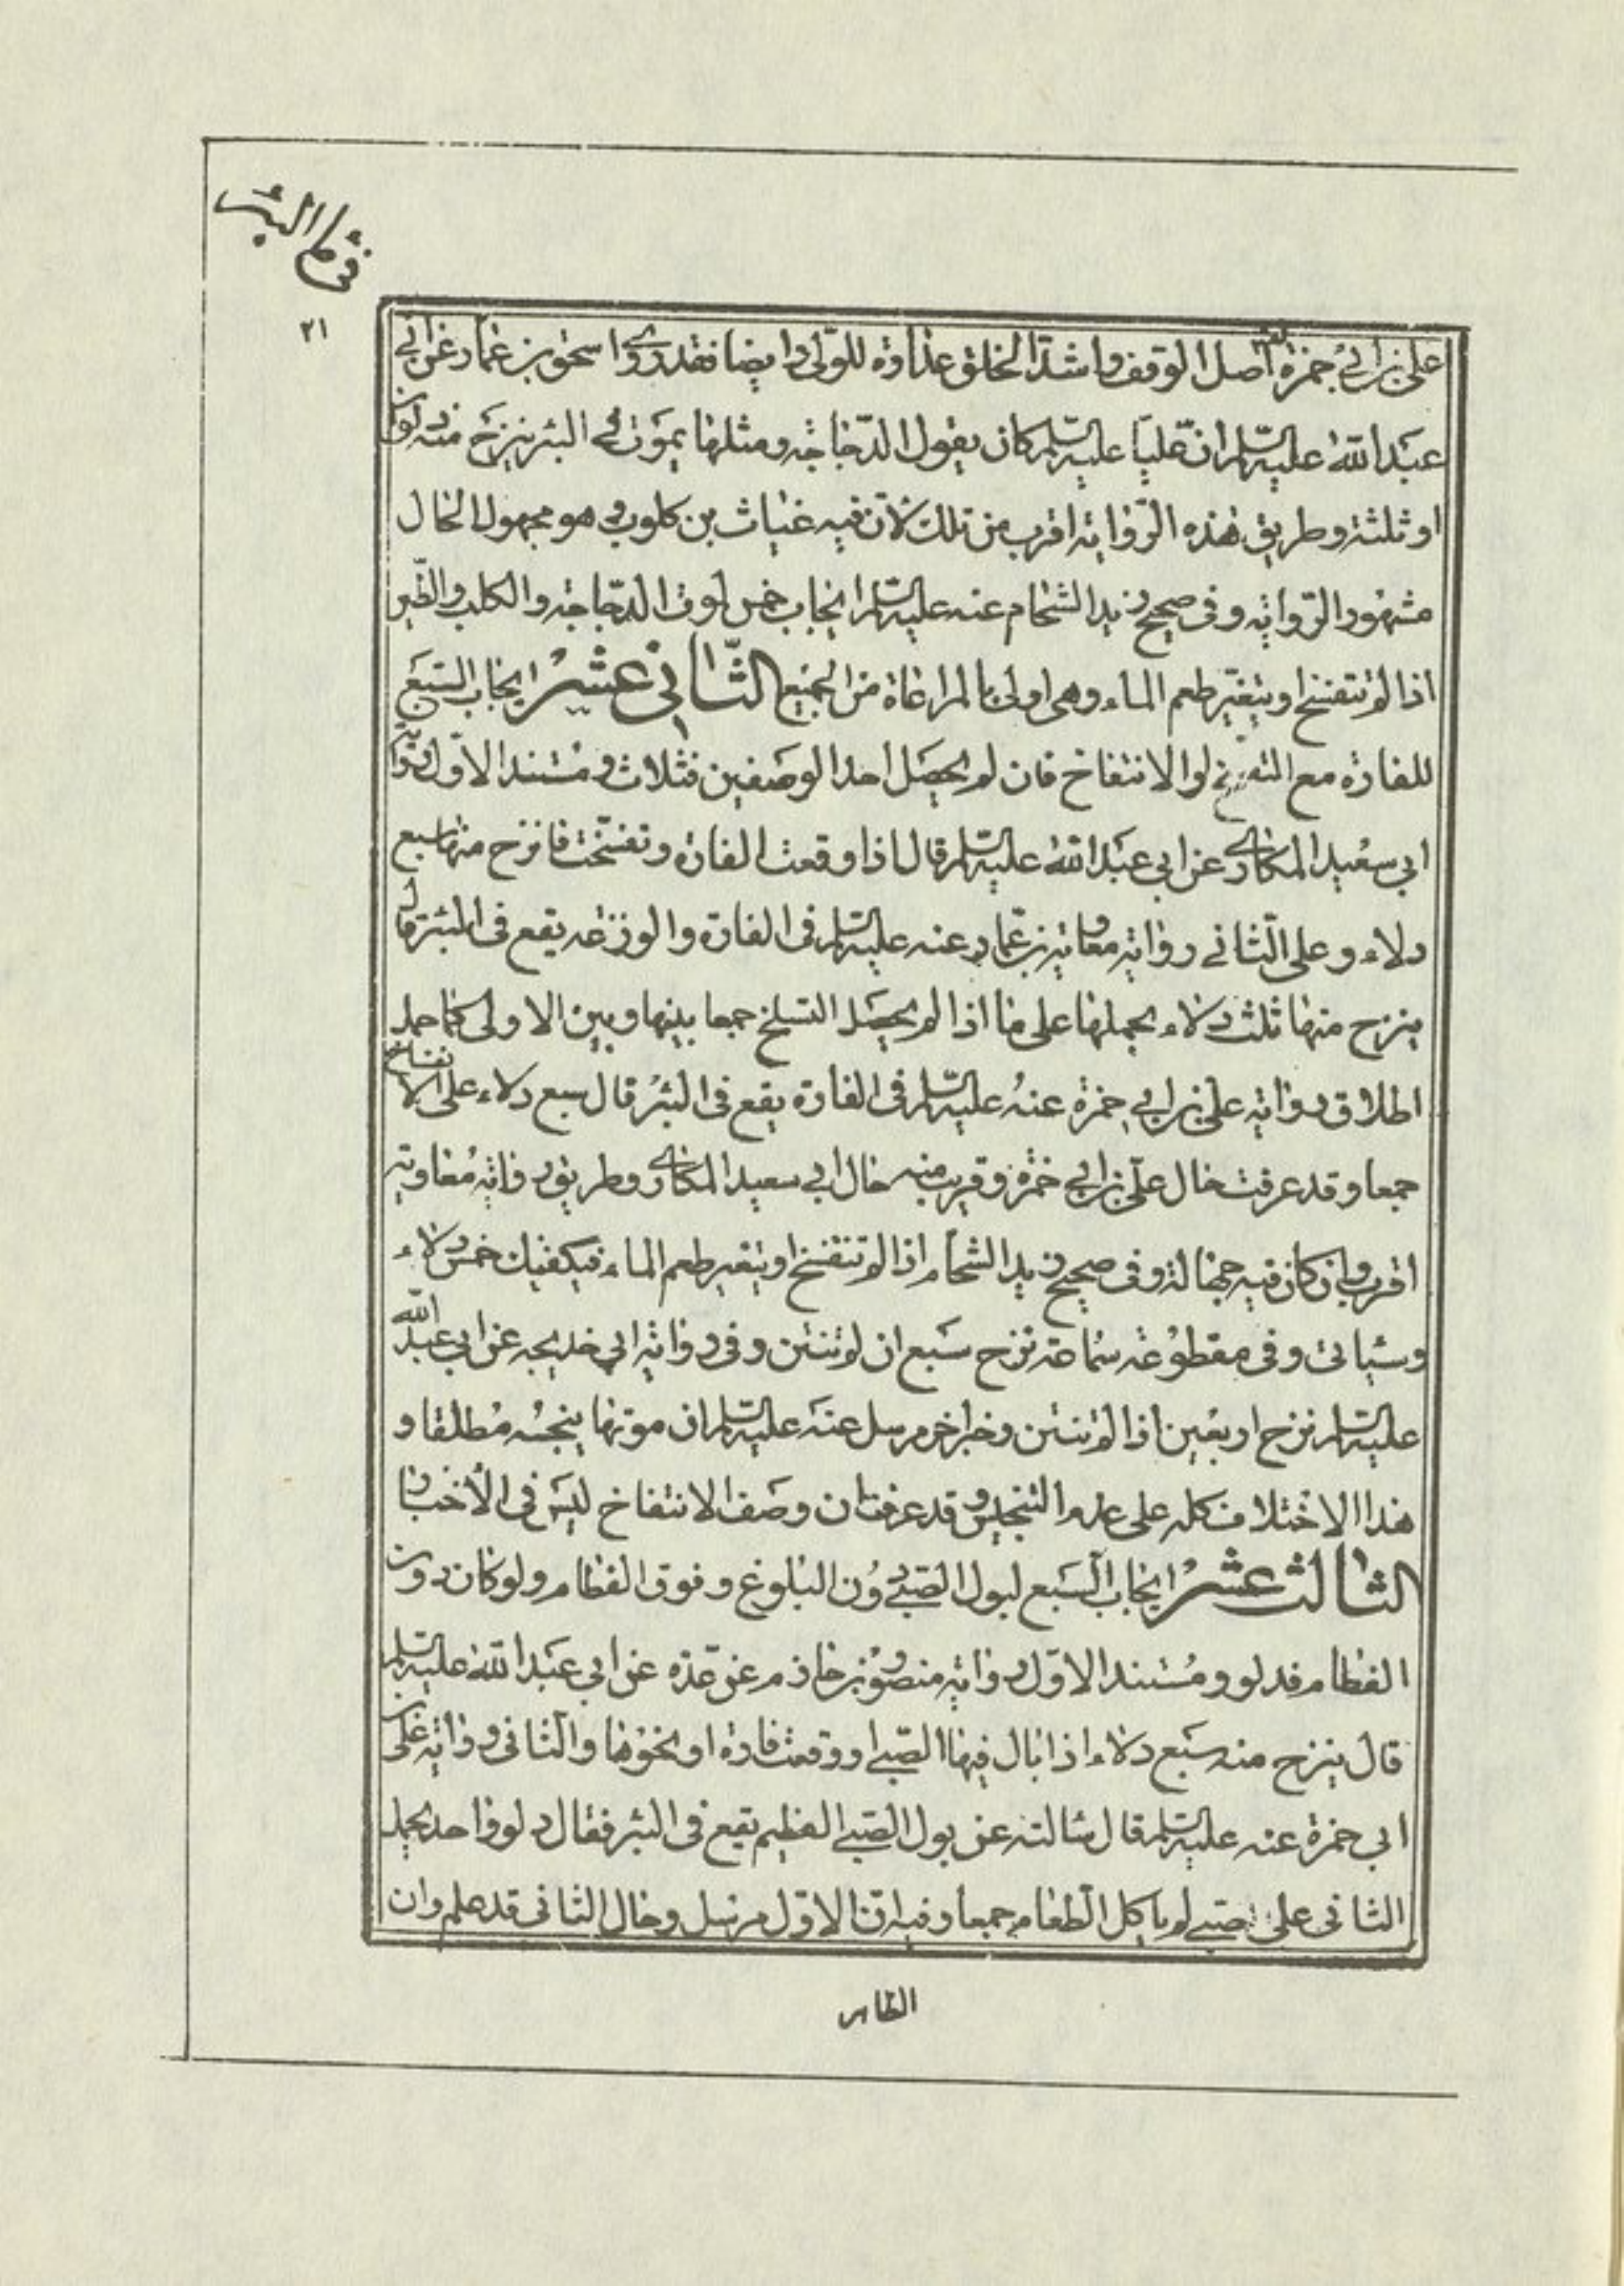 فى ماء البئر
٢١
على بن ابى حمزة اصل الوقف واشد الخلق عداوة للولى وايضا فقد روى اسحق بن عمار عن ابى
عبد الله عليه السلم ان عليا عليه السلم كان يقول الدجاجة ومثلها يموت فى البئر ينزح منه دلوان
او ثلثة وطريق هذه الرواية اقرب من تلك لان فيه غياث بن كلوب وهو مجهول الحال
مشهور الرواية وفى صحيح زيد الشحام عنه عليه السلم ايجاب خمس لموت الدجاجة والكلب والطير
اذا لم تتفسخ او يتغير طعم الماء وهى اولى بالمراعاة من الجميع الثانى عشر ايجاب السبع
للفارة مع التفسخ او الانتفاخ فان لم يحصل احد الوصفين فثلاث ومستند الاول رواية
ابى سعيد المكارى عن ابى عبد الله عليه السلم قال اذا وقعت الفارة وتفسخت فانزح منها سبع
دلاء وعلى الثانى رواية معاوية بن عمار عنه عليه السلم فى الفارة والوزغه يقع فى البئر قال
ينزح منها ثلث دلاء بحملها على ما اذا لم يحصل التسلخ جمعا بينها وبين الاولى كما حمل
اطلاق رواية على بن ابى حمزة عنه عليه السلم فى الفارة يقع فى البئر قال سبع دلاء على الانتفاخ
جمعا وقد عرفت حال على بن ابى حمزة وقريب منه حال ابى سعيد المكارى وطريق رواية معاوية
اقرب وان كان فيه جهالة وفى صحيح زيد الشحام اذا لم تتفسخ او يتغير طعم الماء فيكفيك خمس دلاء
وسياتى وفى مقطوعة سماعة تنزح سبع ان لم تنتن وفى رواية ابى خديجه عن ابى عبد الله
عليه السلم نزح اربعين اذا لم تنتن وخبر اخر مرسل عنه عليه السلم ان موتها ينجسه مطلقا و
هذا الاختلاف كله على عدم التنجيس وقد عرفت ان وصف الانتفاخ ليس فى الاخبار
الثالث عشر ايجاب السبع لبول الصبى دون البلوغ وفوق الفطام ولو كان دون
الفطام فدلو ومستند الاول رواية منصور بن حازم عن عدة عن ابى عبد الله عليه السلم
قال ينزح منه سبع دلاء اذا بال فيها الصبى او وقعت فارة او نحوها والثانى رواية على بن
ابى حمزة عنه عليه السلم قال سالته عن بول الصبى الفطيم يقع فى البئر فقال دلو واحد بحمل
الثانى على صبى لم ياكل الطعام جمعا وفيه ان الاول مرسل وحال الثانى قد علم وان
الظاهر